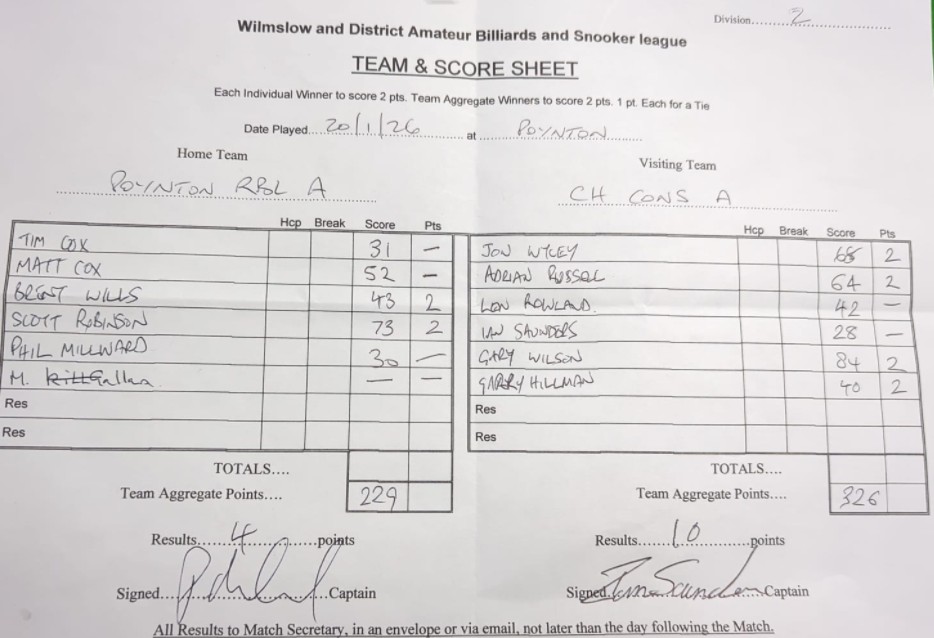 Division..... 2
Wilmslow and District Amateur Billiards and Snooker league
TEAM & SCORE SHEET
Each Individual Winner to score 2 pts. Team Aggregate Winners to score 2 pts. 1 pt. Each for a Tie
Date Played.... 20/1/26 at POYNTON
Home Team Visiting Team
POYNTON RBL A CH CONS A
Hcp Break Score Pts Hcp Break Score Pts
TIM COX 31 — JON WILEY 2
MATT COX 52 — ADRIAN RUSSEL 64 2
BRENT WILLS 43 2 LEN ROWLAND. 42 —
SCOTT ROBINSON 73 2 IAN SAUNDERS 28 —
PHIL MILLWARD 30 — GARY WILSON 84 2
M. — — GARRY HILLMAN 40 2
Res Res
Res Res
TOTALS.... TOTALS....
Team Aggregate Points.... 229 Team Aggregate Points.... 326
Results.... 4 ....points Results.... 10 ....points
Signed.... ....Captain Signed.... ....Captain
All Results to Match Secretary, in an envelope or via email, not later than the day following the Match.